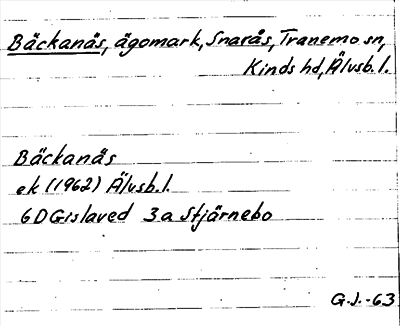 Bäckanäs, ägomark, Snarås, Tranemo sn,
Kinds hd, Älvsb. l.
Bäckanås
ek (1962) Älvsb. l.
6D Gislaved 3a Stjärnebo
G.J.-63